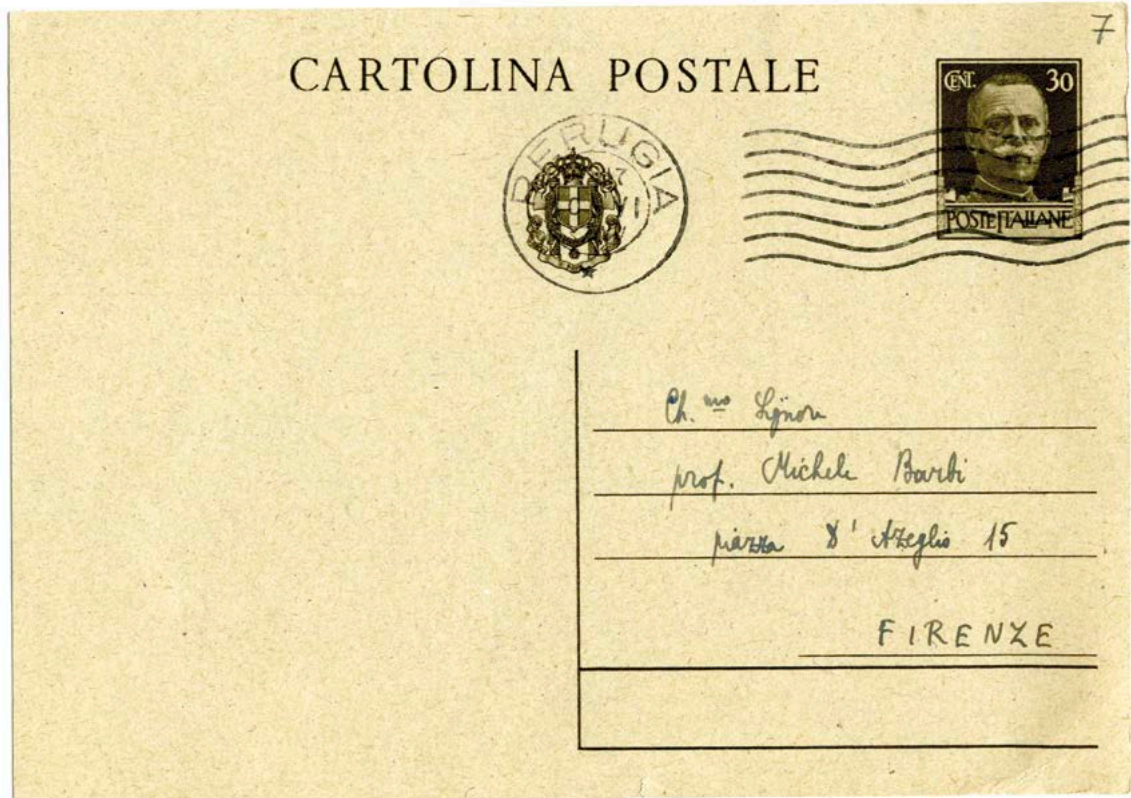 7
CARTOLINA POSTALE
CENT. 30
POSTE ITALIANE
PERUGIA
Ch.mo Signore
prof. Michele Barbi
piazza D'Azeglio 15
FIRENZE